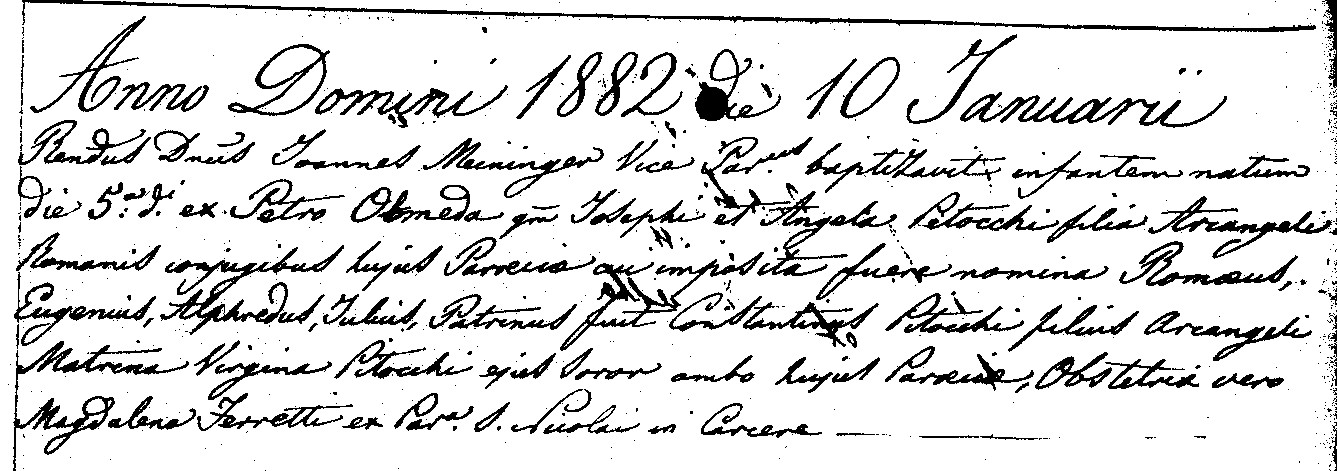 Anno Domini 1882 die 10 Januarii
Rendus Dnus Joannes Meininger Vice Par.cus baptizavit infantem natum
die 5.a d.i ex Petro Olmeda qm Josephi et Angela Pitocchi filia Arcangeli
Romanis conjugibus hujus Parœciæ cui imposita fuere nomina Romæus,
Eugenius, Alphredus, Julius, Patrinus fuit Constantinus Pitocchi filius Arcangeli
Matrina Virginia Pitocchi ejus Soror ambo hujus Parœciæ, Obstetrix vero
Magdalena Ferretti ex Par.a S. Nicolai in Carcere